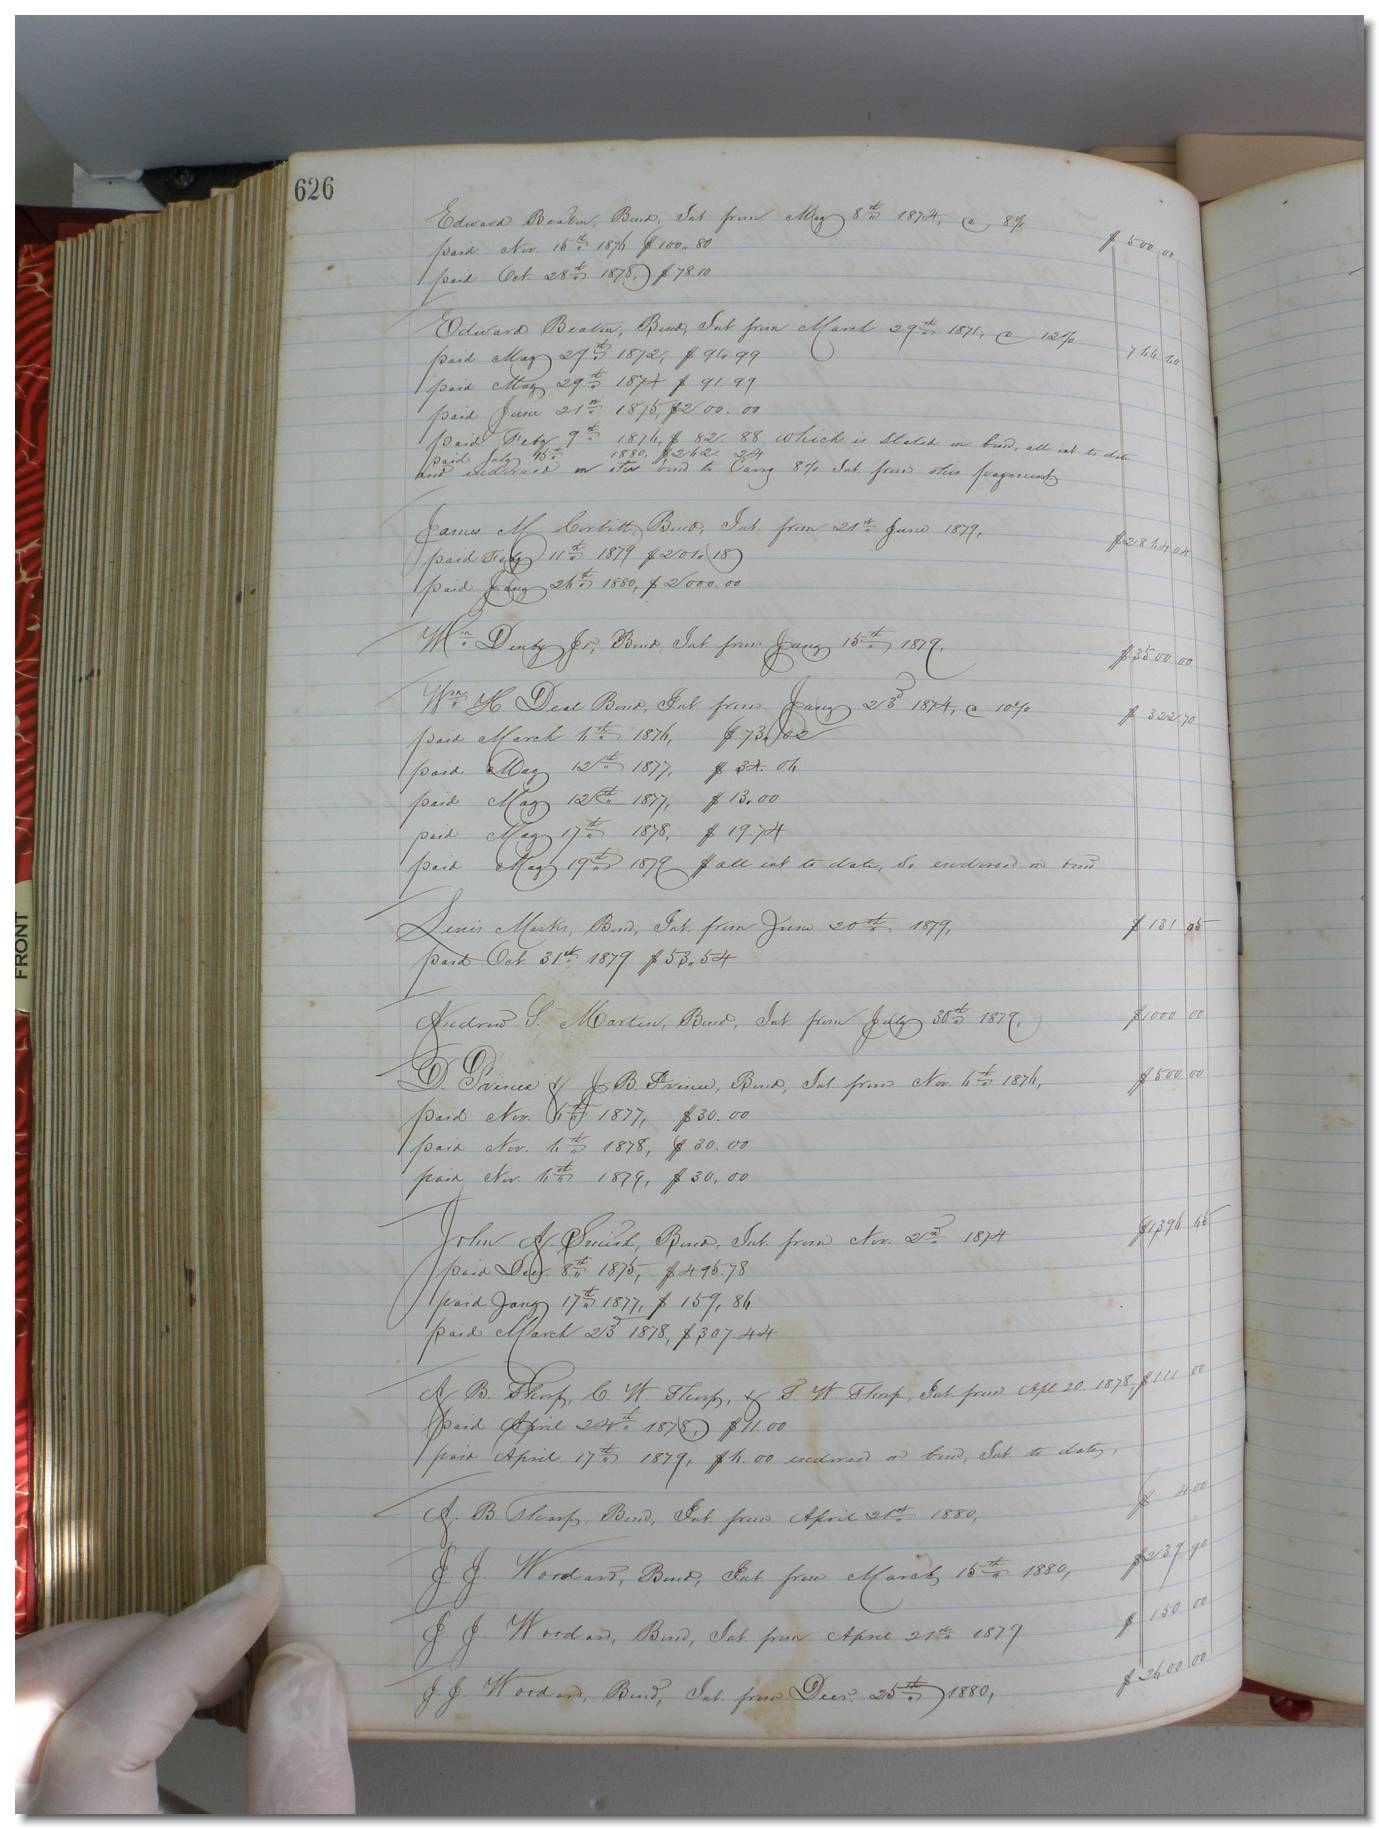 626
Edward Beaton, Bond, Int from May 8th 1874, @ 8% $500.00
paid Nov. 16th 1876 $100.80
paid Oct. 28th 1878, $78.10
Edward Beaton, Bond, Int from March 29th 1871, @ 12% 766.60
paid May 29th 1872, $91.99
paid May 29th 1874 $91.99
paid June 21st 1875, $200.00
paid Feby 9th 1876, $82.88, which is stated on bond, all int to date
paid July 15th 1880, $262.24
and endorsed on the bond to carry 8% Int from this payment
James M Corbitt, Bond, Int. from 21st June 1879, $2864.04
paid Feby 11th 1879 $201.18
paid Jany 26th 1880, $2000.00
Wm Denby Jr, Bond, Int from Jany 15th 1879, $3500 00
Wm H Deal Bond, Int from Jany 23d 1874, @ 10% $322.70
paid March 6th 1876, $73.02
paid May 12th 1877, $34.06
paid May 12th 1877, $13.00
paid May 17th 1878, $19.74
paid May 19th 1879 $all int to date, so endorsed on bond
Lewis Marks, Bond, Int. from June 20th 1879, $131 05
paid Oct. 31st 1879 $53.54
Andrew S. Martin, Bond, Int from July 30th 1879, $1000 00
D. Prince & J B. Prince, Bond, Int from Nov. 6th 1876, $500 00
paid Nov. 6th 1877, $30.00
paid Nov. 6th 1878, $30.00
paid Nov. 6th 1879, $30.00
John A. Smith, Bond, Int. from Nov. 2nd 1874 $1396 45
paid Decr. 8th 1875, $495.78
paid Jany 17th 1877, $159,86
paid March 23d 1878, $307.44
A. B. Tharp, C. W. Tharp, & F. W. Tharp, Int. from Apl 20. 1878, $111 00
paid April 24th 1878, $11.00
paid April 17th 1879, $6.00 endorsed on bond, Int. to date,
A. B Tharp. Bond, Int from April 21st 1880, $ 400
J. J. Woodard, Bond, Int. from March 15th 1880, $239 90
J. J. Woodard, Bond, Int. from April 21st 1879 $150 00
J. J. Woodard, Bond, Int from Decr. 25th 1880, $2600 00
FRONT